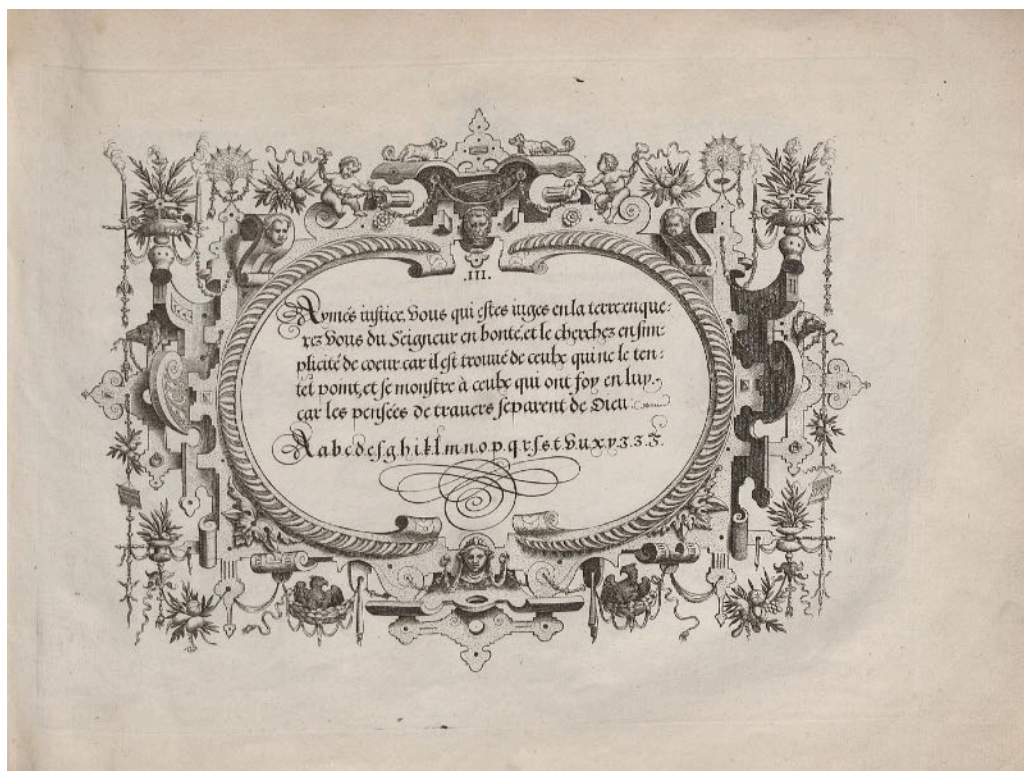 .III.
Aymés iustice, Vous qui estes iuges en la terre: enque-
rez Vous du Seigneur en bonté, et le cherchez en sim-
plicité de coeur car il est trouué de ceulx qui ne le ten-
tēt point, et se monstre à ceulx qui ont foy en luy.
car les pensées de trauers separent de Dieu.
A a b c d e f g h i k l m n o p. q r ſ s t V u x y z z z.